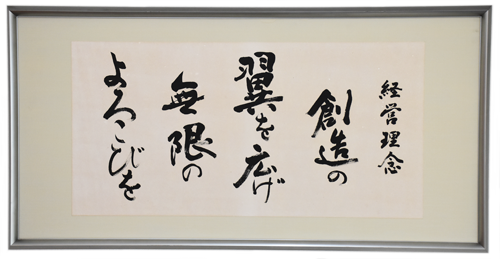 経営理念
創造の
翼を広げ
無限の
よろこびを